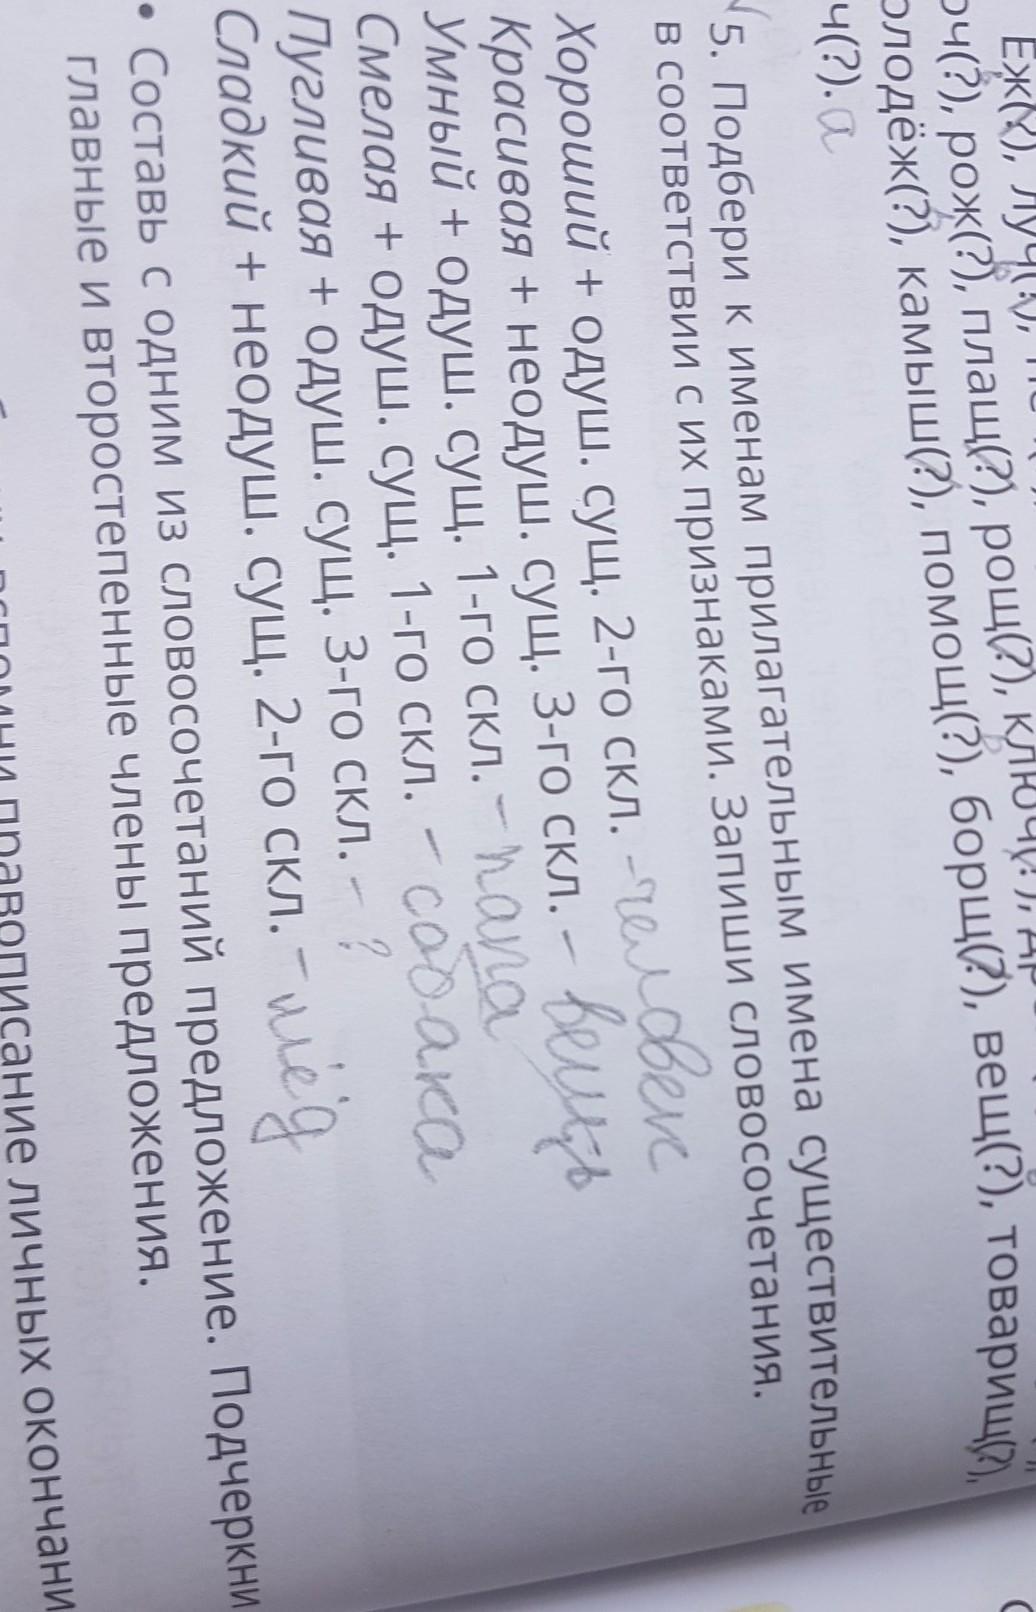 Еж(?), луч(?),
оч(?), рож(?), плащ(?), рощ(?), ключ(?),
олодёж(?), камыш(?), помощ(?), борщ(?), вещ(?), товарищ(?),
ч(?). а
√ 5. Подбери к именам прилагательным имена существительные
в соответствии с их признаками. Запиши словосочетания.
Хороший + одуш. сущ. 2-го скл. – человек
Красивая + неодуш. сущ. 3-го скл. – вещь
Умный + одуш. сущ. 1-го скл. – папа
Смелая + одуш. сущ. 1-го скл. – собака
Пугливая + одуш. сущ. 3-го скл. – ?
Сладкий + неодуш. сущ. 2-го скл. – мёд
• Составь с одним из словосочетаний предложение. Подчеркни
главные и второстепенные члены предложения.
вспомни правописание личных окончани